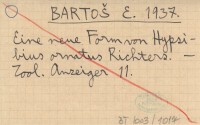 BARTOŠ E. 1937.
Eine neue Form von Hypsi-
bius ornatus Richters. —
Zool. Anzeiger 11.